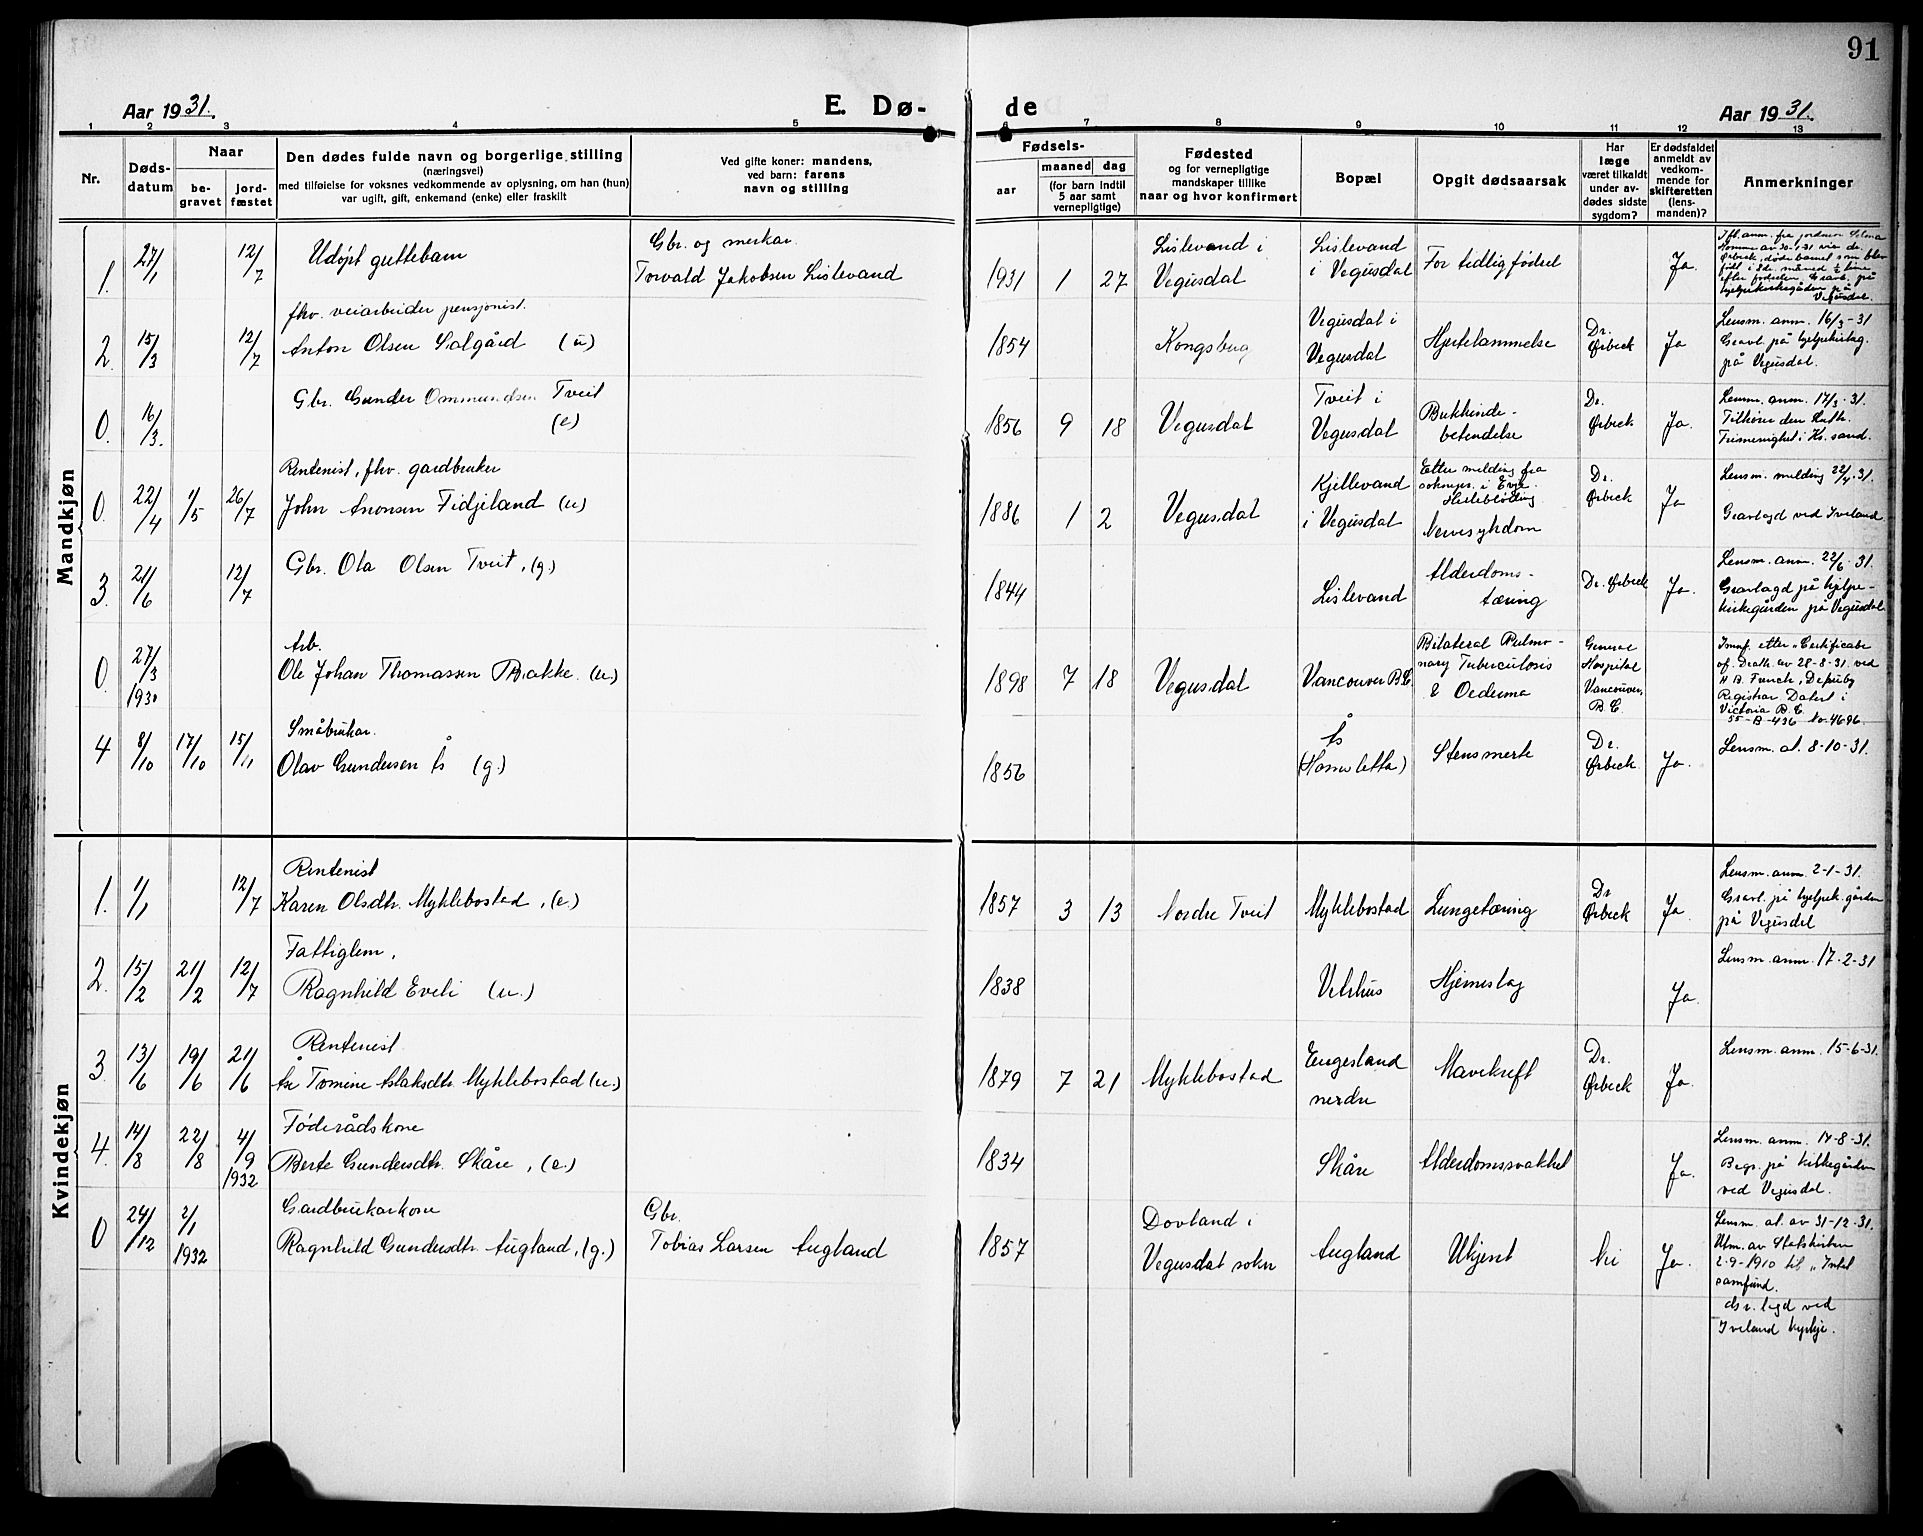 91
Aar 1931.
E. Dø-
de
Aar 1931.
1 2 3 4 5 6 7 8 9 10 11 12 13
Nr.
Døds-
datum
Naar
be-
gravet
jord-
fæstet
Den dødes fulde navn og borgerlige stilling
(næringsvei)
med tilføielse for voksnes vedkommende av oplysning, om han (hun)
var ugift, gift, enkemand (enke) eller fraskilt
Ved gifte koner: mandens,
ved barn: farens
navn og stilling
Fødsels-
aar
maaned
dag
(for barn indtil
5 aar samt
vernepligtige)
Fødested
og for vernepligtige
mandskaper tillike
naar og hvor konfirmert
Bopæl
Opgit dødsaarsak
Har
læge
været tilkaldt
under av-
dødes sidste
sygdom?
Er dødsfaldet
anmeldt av
vedkom-
mende for
skifteretten
(lens-
manden)?
Anmerkninger
Mandkjøn
1. 27/1 12/7
Udøpt guttebarn
Gbr. og merkar.
Torvald Jakobsen Lislevand
1931 1 27
Lislevand i
Vegusdal
Lislevand
i Vegusdal
For tidlig fødsel
Ja.
Ifl. anm. fra jordmor
født i 8de måned
efter fødselen. Gravl. på
hjelpekirkegården på
Vegusdal.
2. 15/3 12/7
fhv. veiarbeider pensjonist.
Anton Olsen Solgård (u)
1854
Kongsberg
Vegusdal i
Vegusdal
Hjertelammelse
Dr.
Ørbeck
Ja
Lensm. anm. 16/3-31
Gravl. på hjelpekirkeg.
på Vegusdal.
0. 16/3.
Gbr. Gunder Ommundsen Tveit
(e)
1856 9 18
Vegusdal
Tveit i
Vegusdal
Bukhinde-
betendelse
Dr.
Ørbeck
Ja.
Lensm. anm. 17/3-31.
Tilhører den luth.
Frimenighet i Kr. sand.
0. 22/4 1/5 26/7
Rentenist, fhv. gardbruker
John Aronsen Fidjeland (u)
1886 1 2
Vegusdal
Kjellevand
i Vegusdal
Etter melding fra
soknepr. i Evje.
Nervesykdom
Dr.
Ørbeck
Ja
Lensm. melding 22/4-31.
Gravlagd ved Iveland
3. 21/6 12/7
Gbr. Ola Olsen Tveit, (g.)
1844
Lislevand
Alderdoms-
tæring
Dr. Ørbeck
Ja.
Lensm. anm. 22/6-31.
Gravlagd på hjelpe-
kirkegården på Vegusdal
0. 27/3 1930
Arb.
Ole Johan Thomassen Bakke. (u.)
1898 7 18
Vegusdal
Vancouver B.C.
Bilateral Pulmo-
nary Tuberculosis
& Oedema
General
Hospital
Vancouver,
B.C.
Innf. etter "Certificate
of Death av 28-8-31 ved
H. B. French, Deputy
Registrar Datert i
Victoria B.C.
55-B-436 No. 4696.
4 8/10 17/10 15/11
Småbrukar.
Olav Gundersen Ås (g.)
1856
Ås
(Homsletta)
Stensmerte
Dr.
Ørbeck
Ja.
Lensm. at. 8-10-31.
Kvindekjøn
1. 1/1 12/7
Rentenist
Karen Olsdtr. Myklebostad, (e.)
1857 3 13
Nordre Tveit
Myklebostad
Lungetæring
Dr
Ørbeck
Ja.
Lensm. anm. 2-1-31.
Gravl. på hjelpek. gården
på Vegusdal
2. 15/2 21/2 12/7
Fattiglem,
Ragnhild Eveli (u.)
1838
Vetrhus
Hjerneslag
Ja.
Lensm. anm. 17-2-31
3. 13/6 19/6 21/6
Rentenist
Åse Tomine Aslaksdtr. Myklebostad (u.)
1879 7 21
Myklebostad
Engesland
nerdre
Mavekreft
Dr.
Ørbeck
Ja.
Lensm. anm. 15-6-31.
4. 14/8 22/8 4/9 1932
Føderådskone
Berte Gundersdtr. Skåre, (e.)
1834
Skåre
Alderdomssvakhet
Ja.
Lensm. anm. 17-8-31.
Begr. på kirkegården
ved Vegusdal.
0 24/12 2/1 1932
Gardbrukarkone
Ragnhild Gundersdtr. Augland, (g.)
Gbr.
Tobias Larsen Augland
1857
Dovland i
Vegusdal sokn
Augland
Ukjent
Nei
Ja.
Lensm. at. av 31-12-31.
Utm. av Statskirken
2-9-1910 til "Intet
samfund.
Gr. legd ved
Iveland kyrkje.